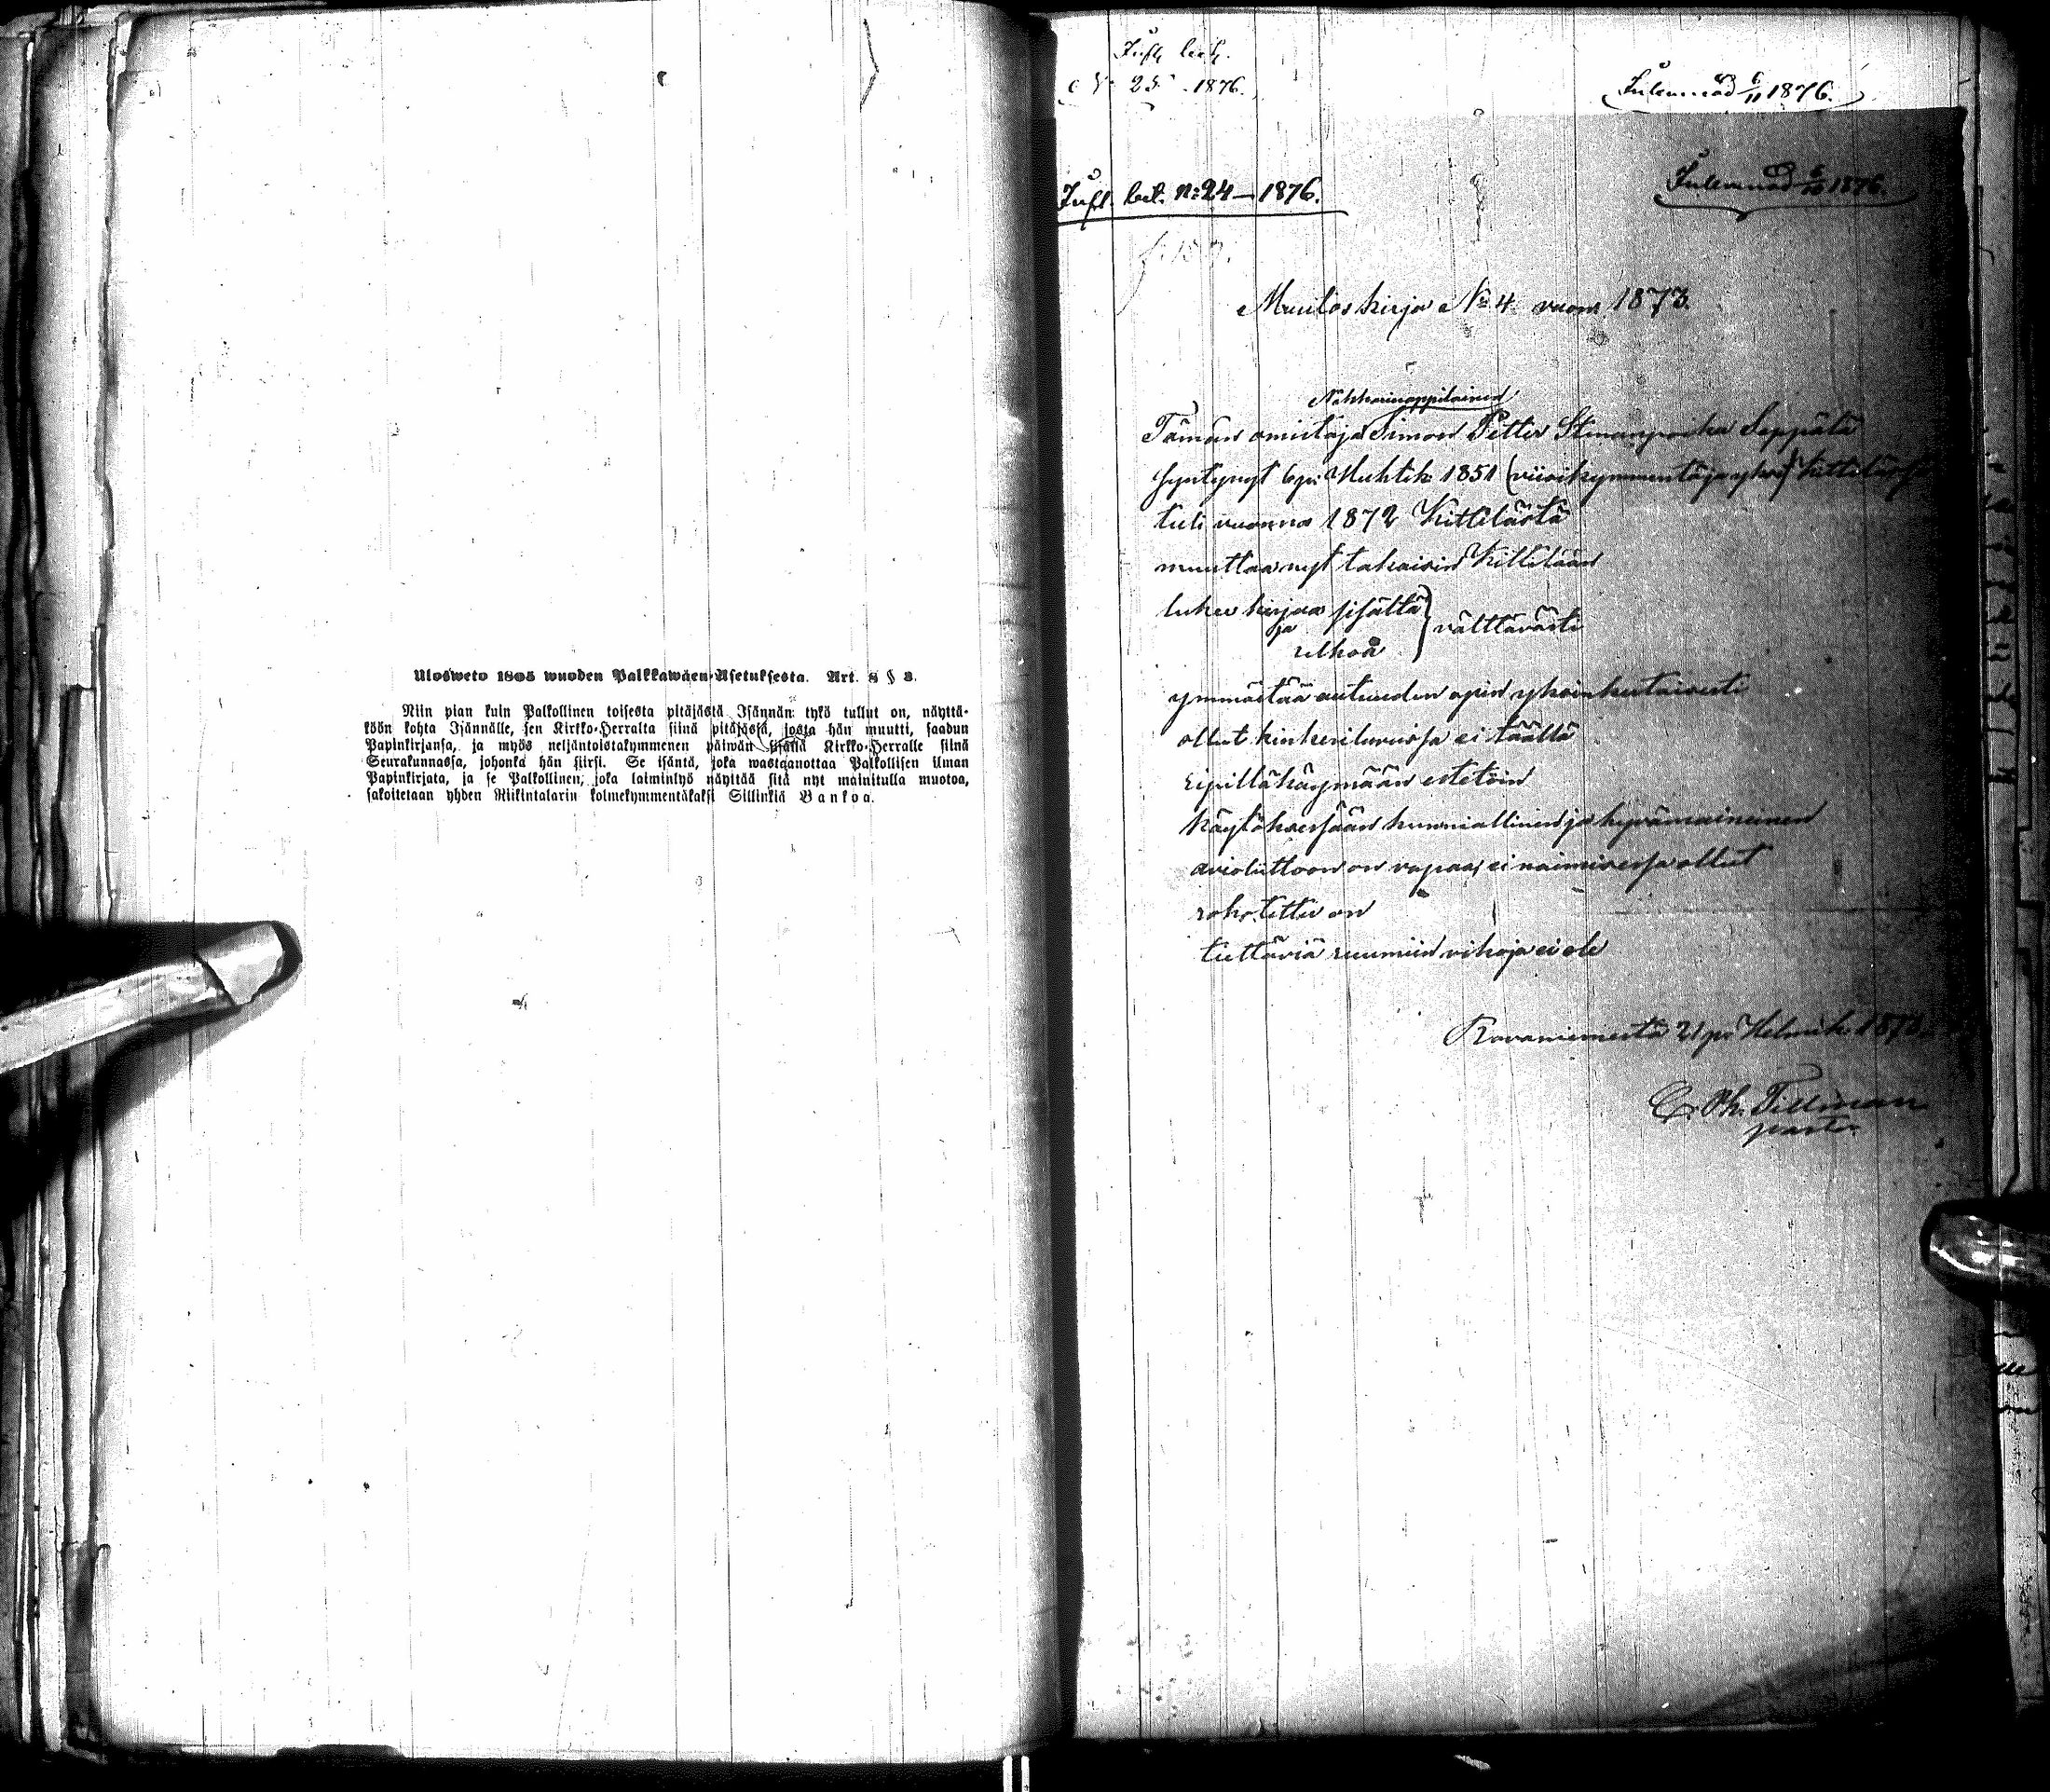 Ulosweto 1805 wuoden Palkkawäen-Asetuksesta. Art. 8 § 3.
Niin pian kuin Palkollinen toisesta pitäjästä Isännän tykö tullut on, näyttä-
köön kohta Isännälle, sen Kirkko-Herralta siinä pitäjässä, josta hän muutti, saadun
Papinkirjansa, ja myös neljäntoistakymmenen päiwän sisällä Kirkko-Herralle siinä
Seurakunnassa, johonka hän siirsi. Se isäntä, joka wastaanottaa Palkollisen ilman
Papinkirjata, ja se Palkollinen, joka laiminlyö näyttää sitä nyt mainitulla muotoa,
sakoitetaan yhden Riikintalarin kolmekymmentäkaksi Sillinkiä Bankoa.
Infl. bet.
N:o 25 1876.
Inlemnad 6/11 1876.
Infl. bet. N:o 24 — 1876.
Inlemnad 6/10 1876.
Muutoskirja N:o 4 vuona 1873.
Nahkurinoppilainen
Tämän omistaja Simon Petter Simonpoika Seppälä
syntynyt 6 p: Huhtik 1851 (viisikymmentäjayksi) Kittilässä
tuli vuonna 1872 Kittilästä
muuttaa nyt takaisin Kittilään
lukee kirjaa sisältä
ja
ulkoa
välttävästi
ymmärtää autuuden opin yksinkertaisesti
ollut kinkeriluvuissa ei täällä
ripillä käymään estetöin
käytöksessään kunniallinen ja hyvämaineinen
avioliittoon on vapaa, ei naimisessa ollut
rokotettu on
tiettäviä ruumiin vikoja ei ole
Rovaniemestä 21 p: Helmik. 187
C. Ph. Tillman
past.